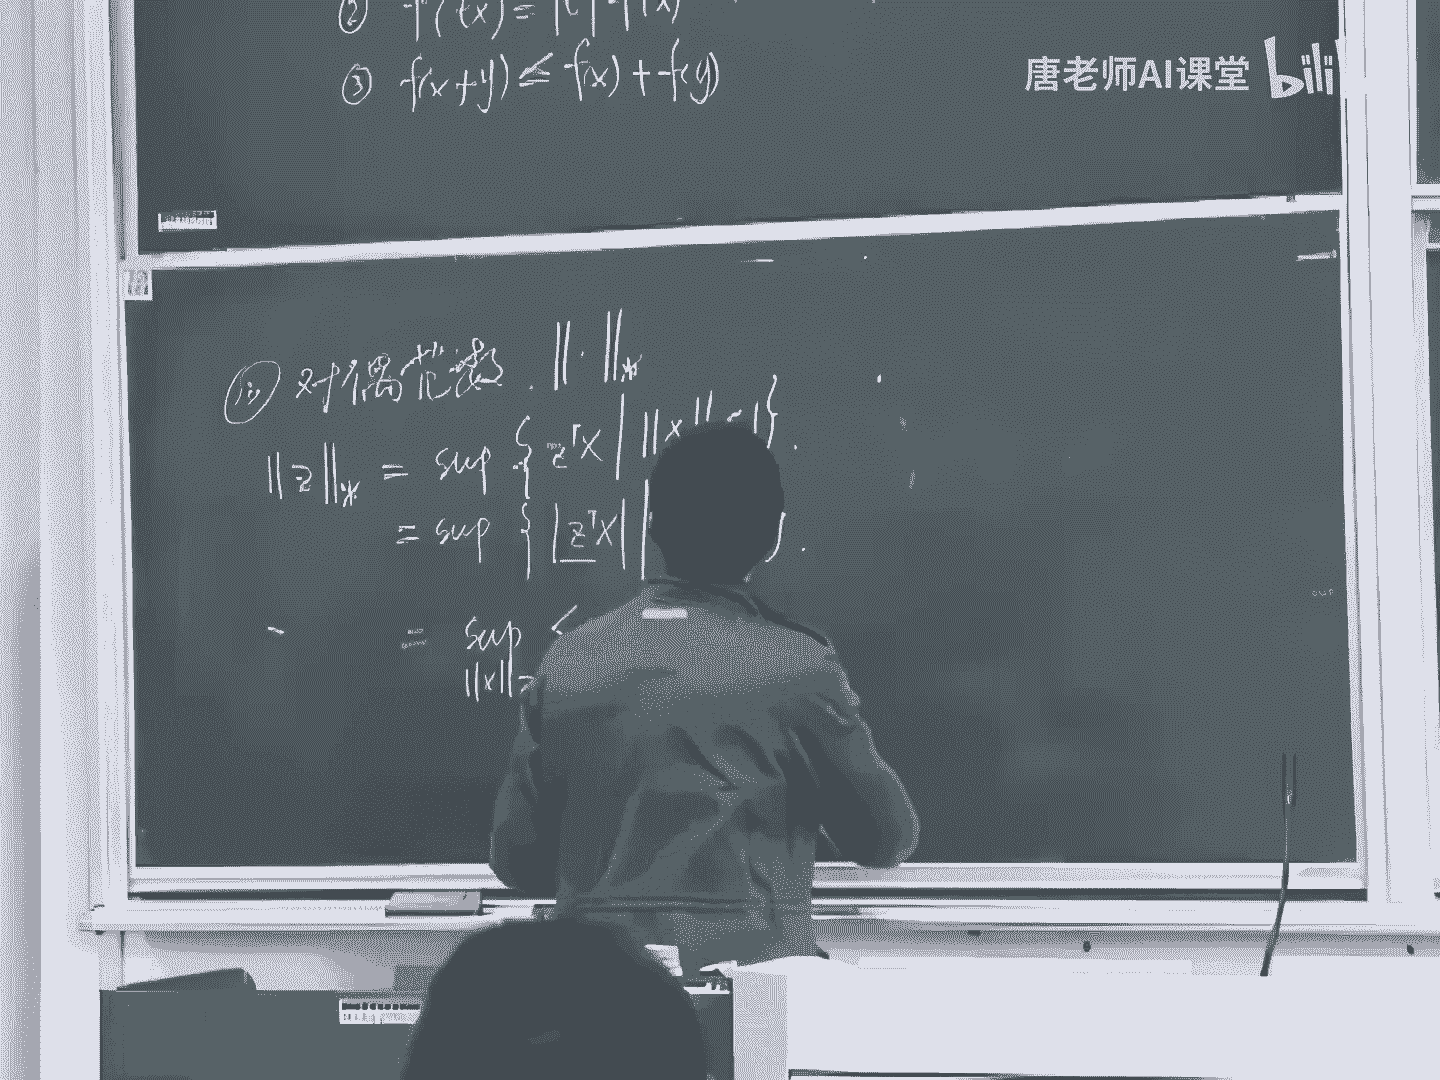 ② f(tx) = |t| f(x)
③ f(x+y) ≤ f(x) + f(y)
唐老师AI课堂 bili
对偶范数. ‖·‖*
‖z‖* = sup { zᵀx | ‖x‖ ≤ 1 }.
= sup { |zᵀx| | }.
= sup
‖x‖=